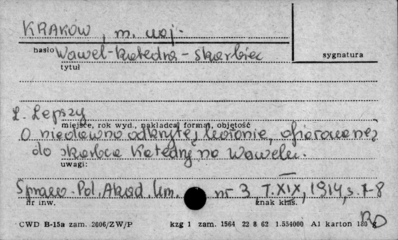 KRAKÓW, m. woj.
hasło Wawel-Katedra-Skarbiec
sygnatura
tytuł
L. Lepszy
miejsce, rok wyd., nakładca, format, objętość
O niedawno odkrytej koronie, ofiarowanej
do skarbca Katedry na Wawelu.
uwagi:
Spraw. Pol. Akad. Um. nr 3 T. XIX, 1914, s. 7-8
nr inw. znak klas.
CWD B-15a zam. 2696/ZW/P kzg 1 zam. 1564 22 8 62 1.554000 A1 karton 180 g